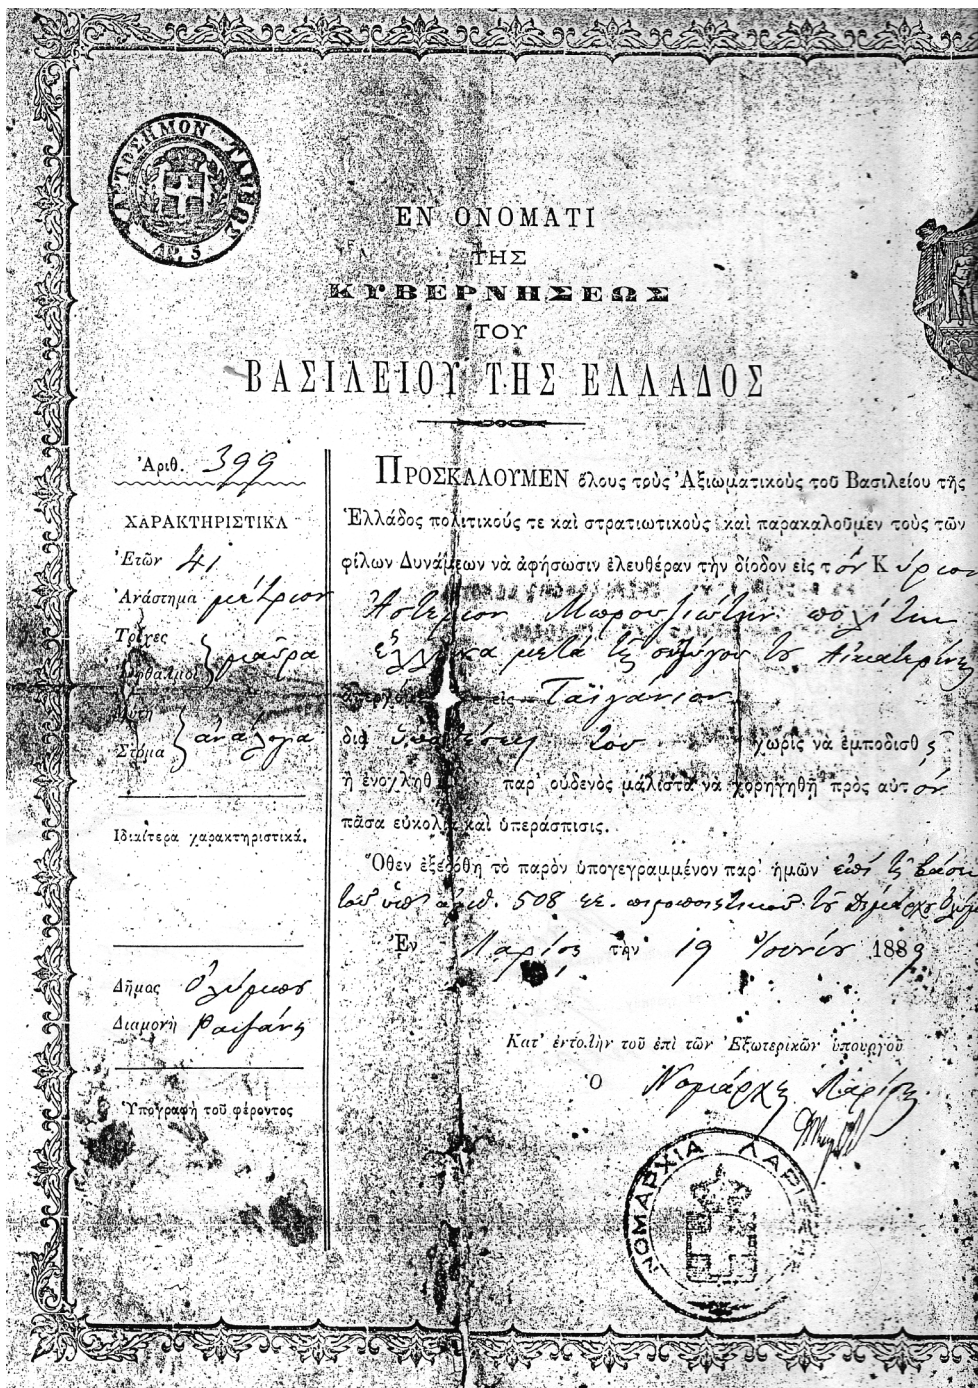 ΧΑΡΤΟΣΗΜΟΝ ΤΑΚΤΟΝ
ΔΡ. 5
ΕΝ ΟΝΟΜΑΤΙ
ΤΗΣ
ΚΥΒΕΡΝΗΣΕΩΣ
ΤΟΥ
ΒΑΣΙΛΕΙΟΥ ΤΗΣ ΕΛΛΑΔΟΣ
Ἀριθ. 399
ΧΑΡΑΚΤΗΡΙΣΤΙΚΑ
Ἐτῶν 41
Ἀνάστημα μέτριον
Τρίχες
Ὀφθαλμοὶ } μαῦρα
Μύτη
Στόμα } ἀνάλογα
Ἰδιαίτερα χαρακτηριστικά.
Δῆμος Ὀλύμπου
Διαμονὴ Ραψάνη
Ὑπογραφὴ τοῦ φέροντος
ΠΡΟΣΚΑΛΟΥΜΕΝ ὅλους τοὺς Ἀξιωματικοὺς τοῦ Βασιλείου τῆς
Ἑλλάδος πολιτικούς τε καὶ στρατιωτικοὺς καὶ παρακαλοῦμεν τοὺς τῶν
φίλων Δυνάμεων νὰ ἀφήσωσιν ἐλευθέραν τὴν δίοδον εἰς τὸν Κύριον
Ἀστέριον πολίτην
Ἕλληνα μετὰ τῆς συζύγου του Αἰκατερίνης
εἰς Ταϊγάνιον
διὰ ὑποθέσεις του χωρὶς νὰ ἐμποδισθῇ
ἢ ἐνοχληθ παρ' οὐδενὸς μάλιστα νὰ χορηγηθῇ πρὸς αὐτὸν
πᾶσα εὐκολία καὶ ὑπεράσπισις.
Ὅθεν ἐξεδόθη τὸ παρὸν ὑπογεγραμμένον παρ' ἡμῶν ἐπὶ τῇ βάσει
τοῦ ὑπ' ἀριθ. 508 πιστοποιητικοῦ τοῦ Δημάρχου Ὀλύμπου
Ἐν Λαρίσῃ τὴν 19 Ἰουνίου 1889
Κατ' ἐντολὴν τοῦ ἐπὶ τῶν Ἐξωτερικῶν ὑπουργοῦ
Ὁ Νομάρχης Λαρίσης
ΝΟΜΑΡΧΙΑ ΛΑΡΙΣ